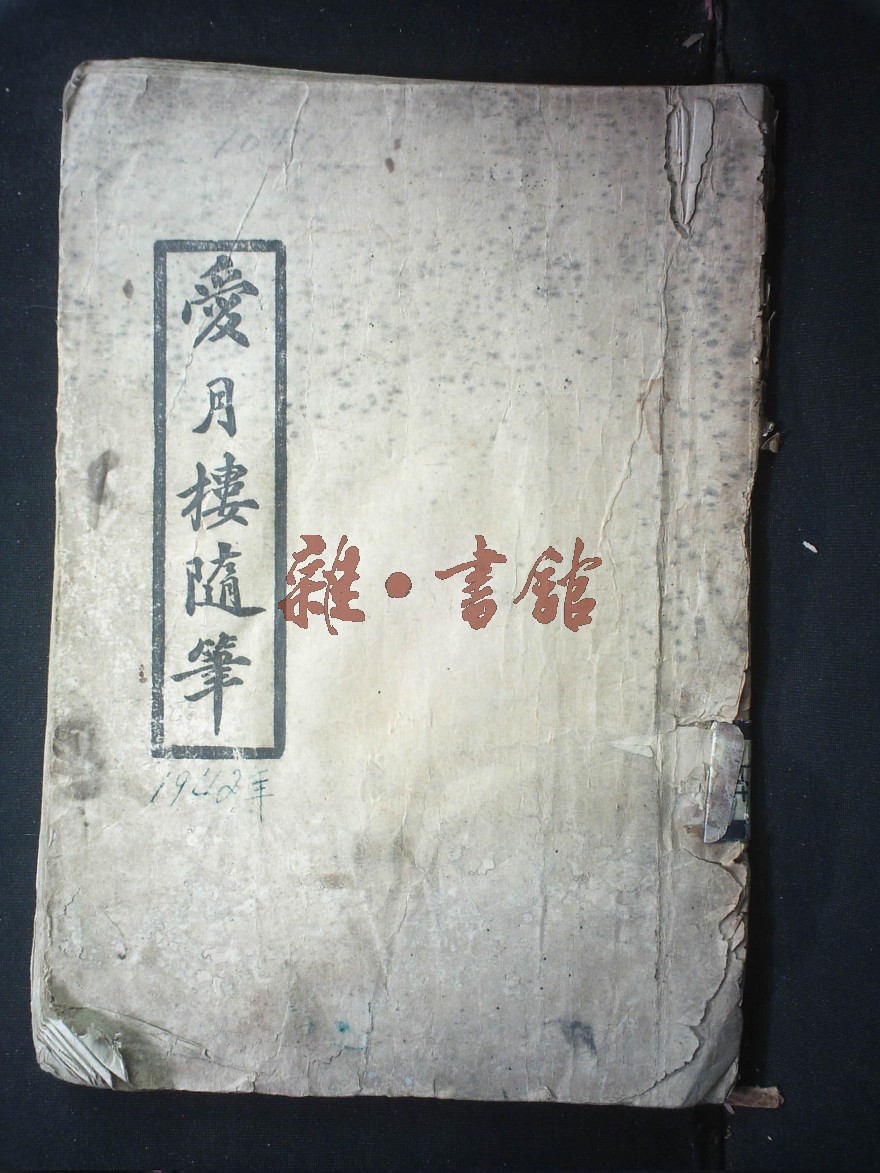 愛月樓隨筆
1942年
雜·書館